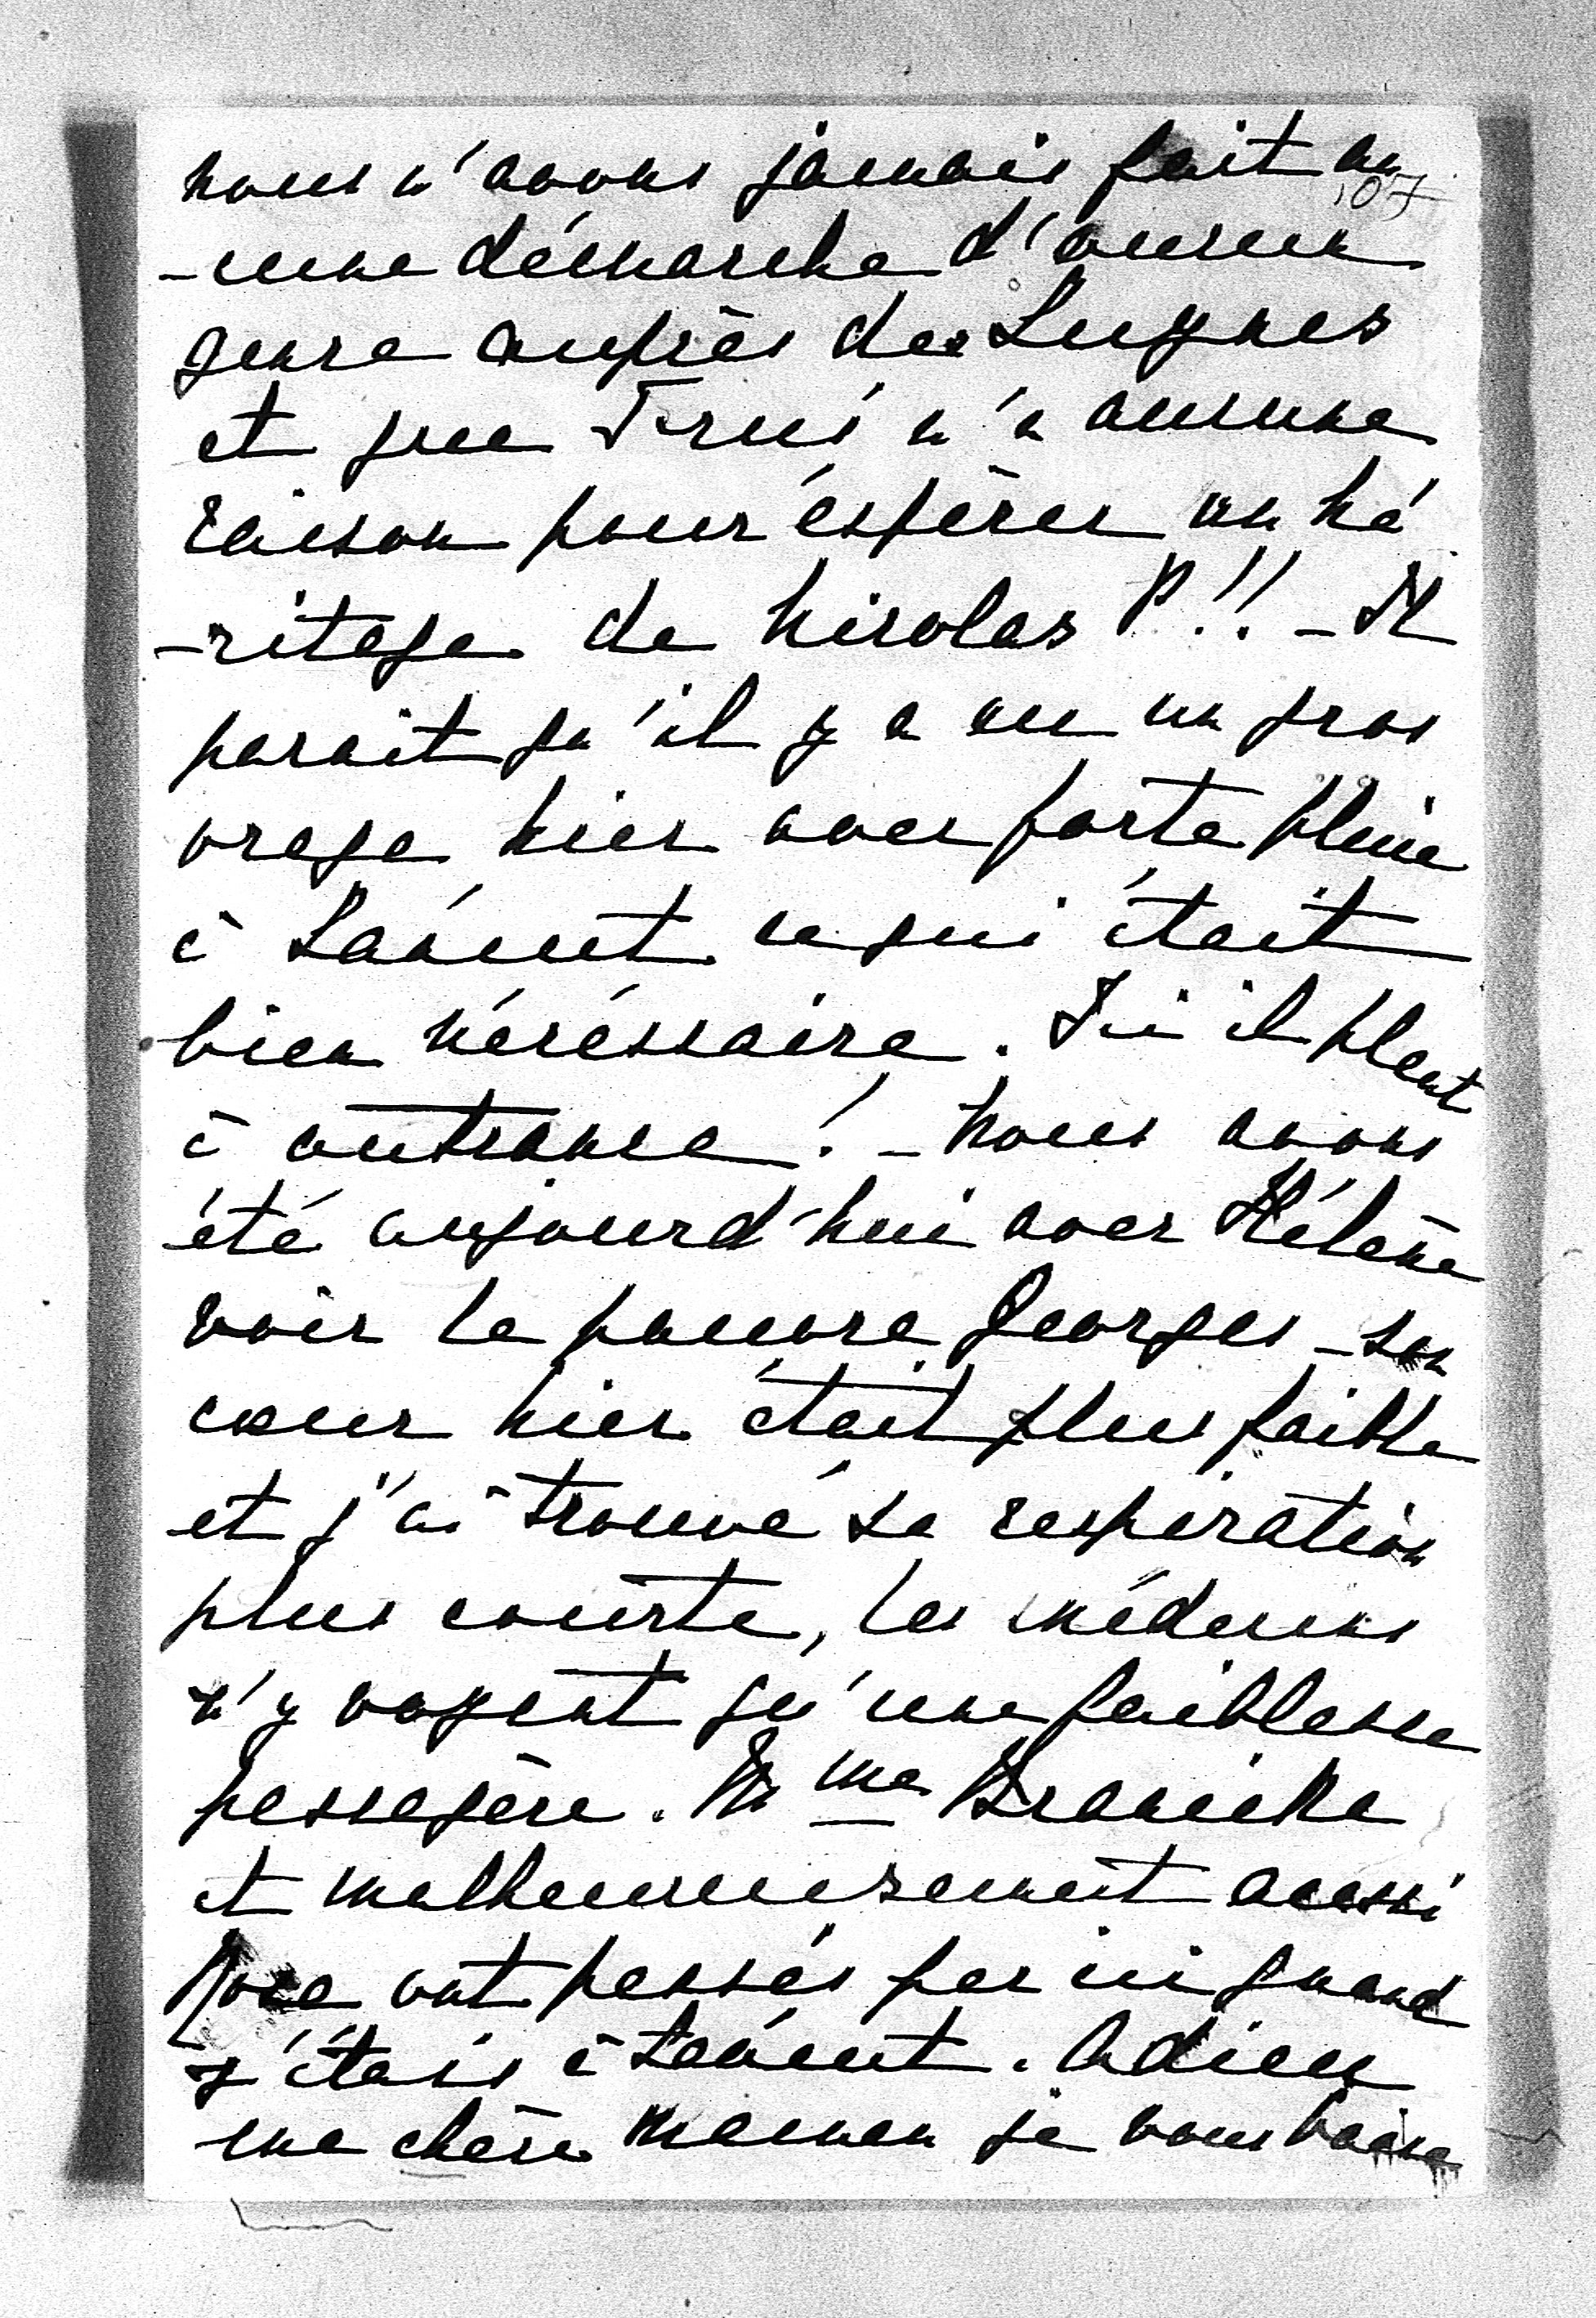 nous n'avons jamais fait au
107
-cune démarche d'aucun
genre auprès des Luynes
et que n'a aucune
raison pour espérer un hé
-ritage de Nicolas P.!! - Il
parait qu'il y a eu un gros
orage hier avec forte pluie
à Laàcut ce qui était
bien nécéssaire. Ici il pleut
à outrance! - Nous avons
été aujourd'hui avec Hélène
voir le pauvre Georges - son
cœur hier était plus faible
et j'ai trouvé sa respiration
plus courte, les médecins
n'y voyent qu'une faiblesse
passagère. Mme Branicka
et malheureusement aussi
Rose ont passés par ici quand
j'étais à Laàcut. Adieu
ma chère Maman je vous baise